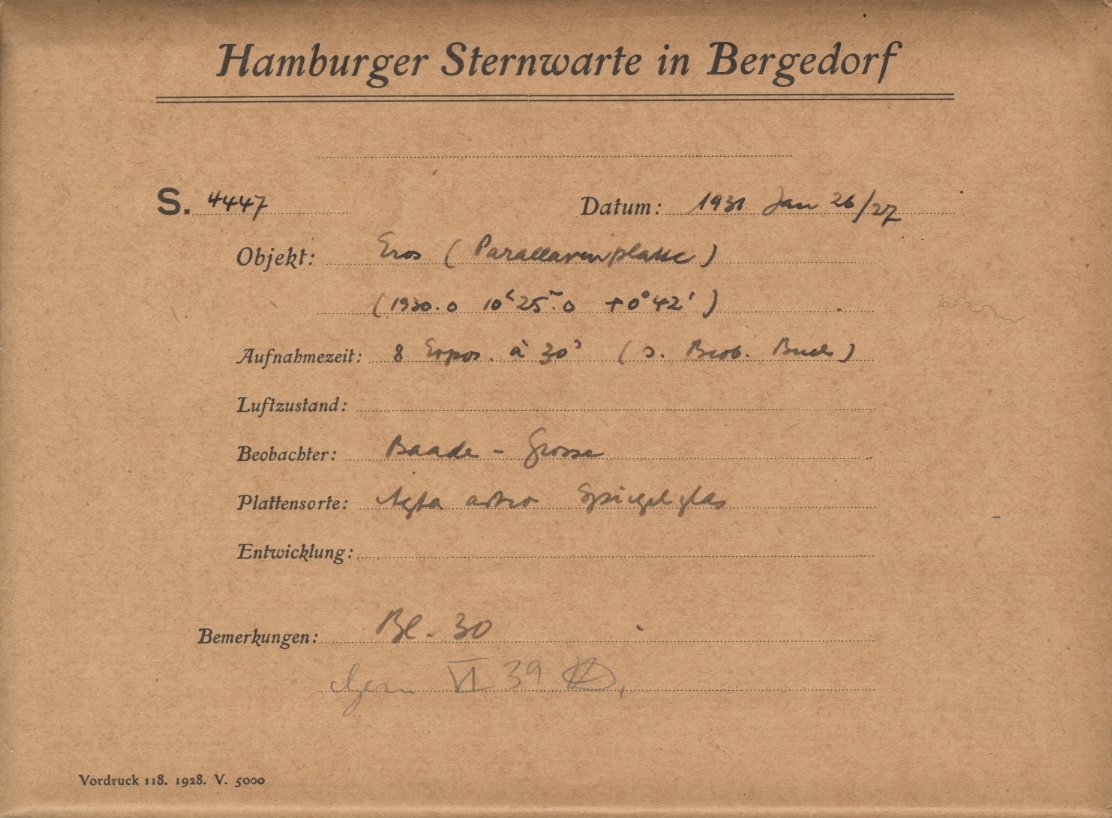 Hamburger Sternwarte in Bergedorf
S. 4447 Datum: 1931 Jan 26/27
Objekt: Eros (Parallaxenplatte)
(1930.0 10h 25m.0 +0° 42')
Aufnahmezeit: 8 Expos. à 30s (s. Beob. Buch)
Luftzustand:
Beobachter: Baade - Grosse
Plattensorte: Agfa astro Spiegelglas
Entwicklung:
Bemerkungen: Bl. 30
Gem VI 39
Vordruck 118. 1928. V. 5000